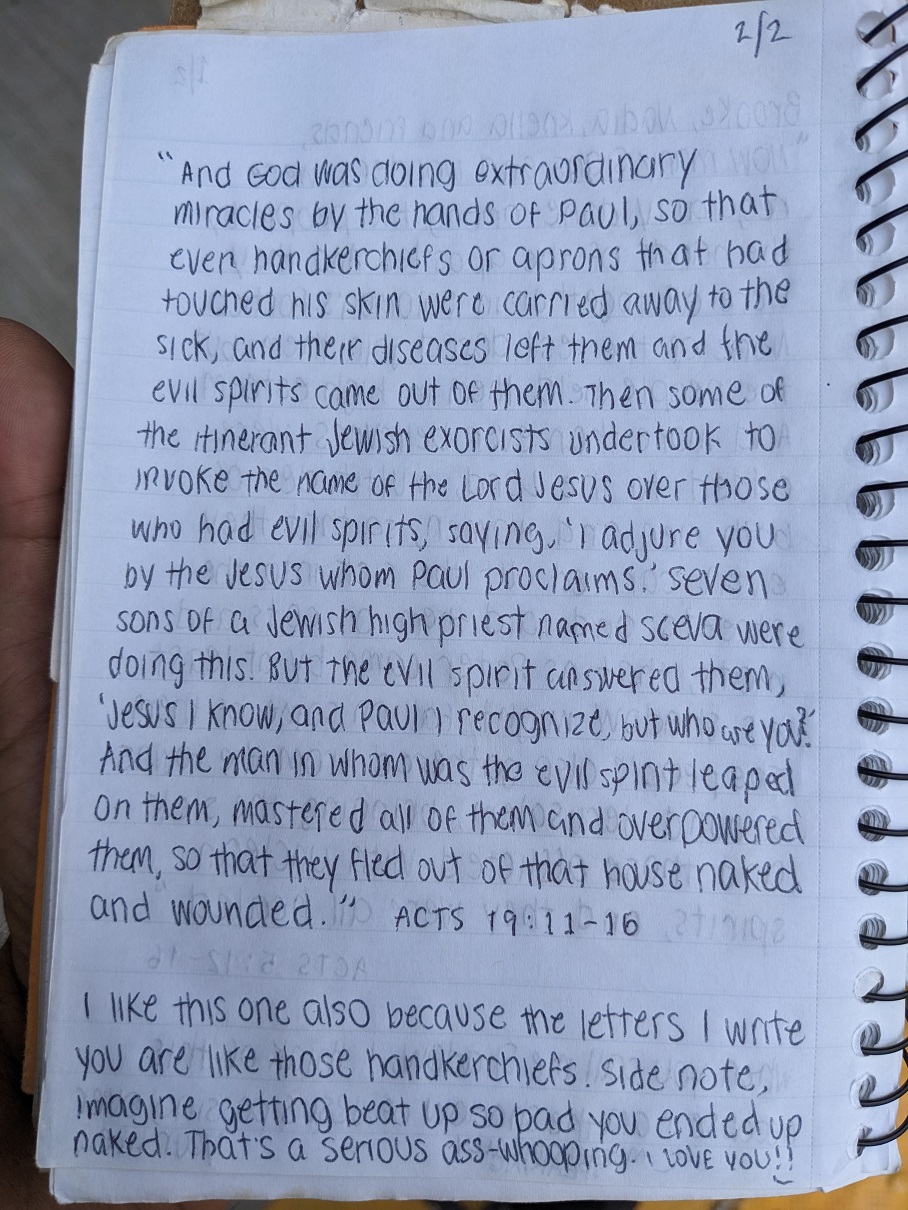 2/2
"And God was doing extraordinary
miracles by the hands of Paul, so that
even handkerchiefs or aprons that had
touched his skin were carried away to the
sick, and their diseases left them and the
evil spirits came out of them. Then some of
the itinerant Jewish exorcists undertook to
invoke the name of the Lord Jesus over those
who had evil spirits, saying, 'I adjure you
by the Jesus whom Paul proclaims.' Seven
sons of a Jewish high priest named Sceva were
doing this. But the evil spirit answered them,
'Jesus I know, and Paul I recognize, but who are you?'
And the man in whom was the evil spirit leaped
on them, mastered all of them and overpowered
them, so that they fled out of that house naked
and wounded." ACTS 19:11-16
I like this one also because the letters I write
you are like those handkerchiefs. Side note,
imagine getting beat up so bad you ended up
naked. That's a serious ass-whooping. I LOVE YOU!!